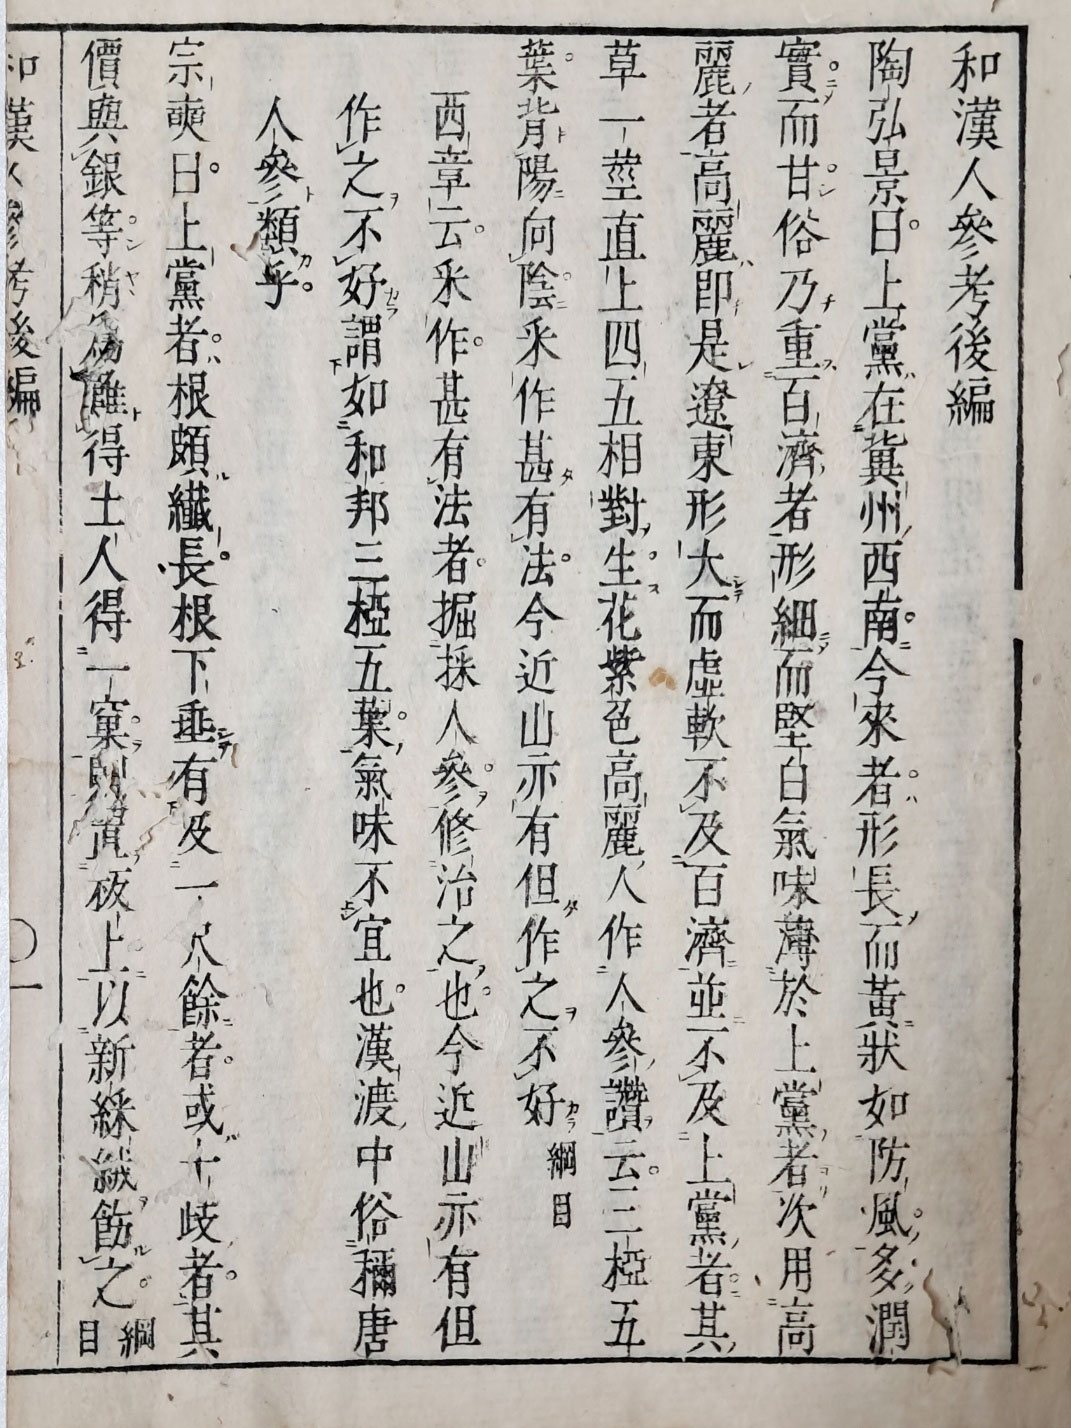 和漢人參考後編
陶弘景曰上黨在冀州西南今來者形長而黃狀如防風多潤
實而甘俗乃重百濟者形細而堅白氣味薄於上黨者次用高
麗者高麗即是遼東形大而虛軟不及百濟並不及上黨者其
草一莖直上四五相對生花紫色高麗人作人參讚云三椏五
葉背陽向陰釆作甚有法今近山亦有但作之不好綱目
酉章云釆作甚有法者掘採人參修治之也今近山亦有但
作之不好謂如和邦三椏五葉氣味不宜也漢渡中俗稱唐
人參類乎
宗奭曰上黨者根頗纖長根下垂有及一尺餘者或十歧者其
價與銀等稍爲難得土人得一窠則置板上以新綵絨飾之綱目
和漢人參考後編 〇一